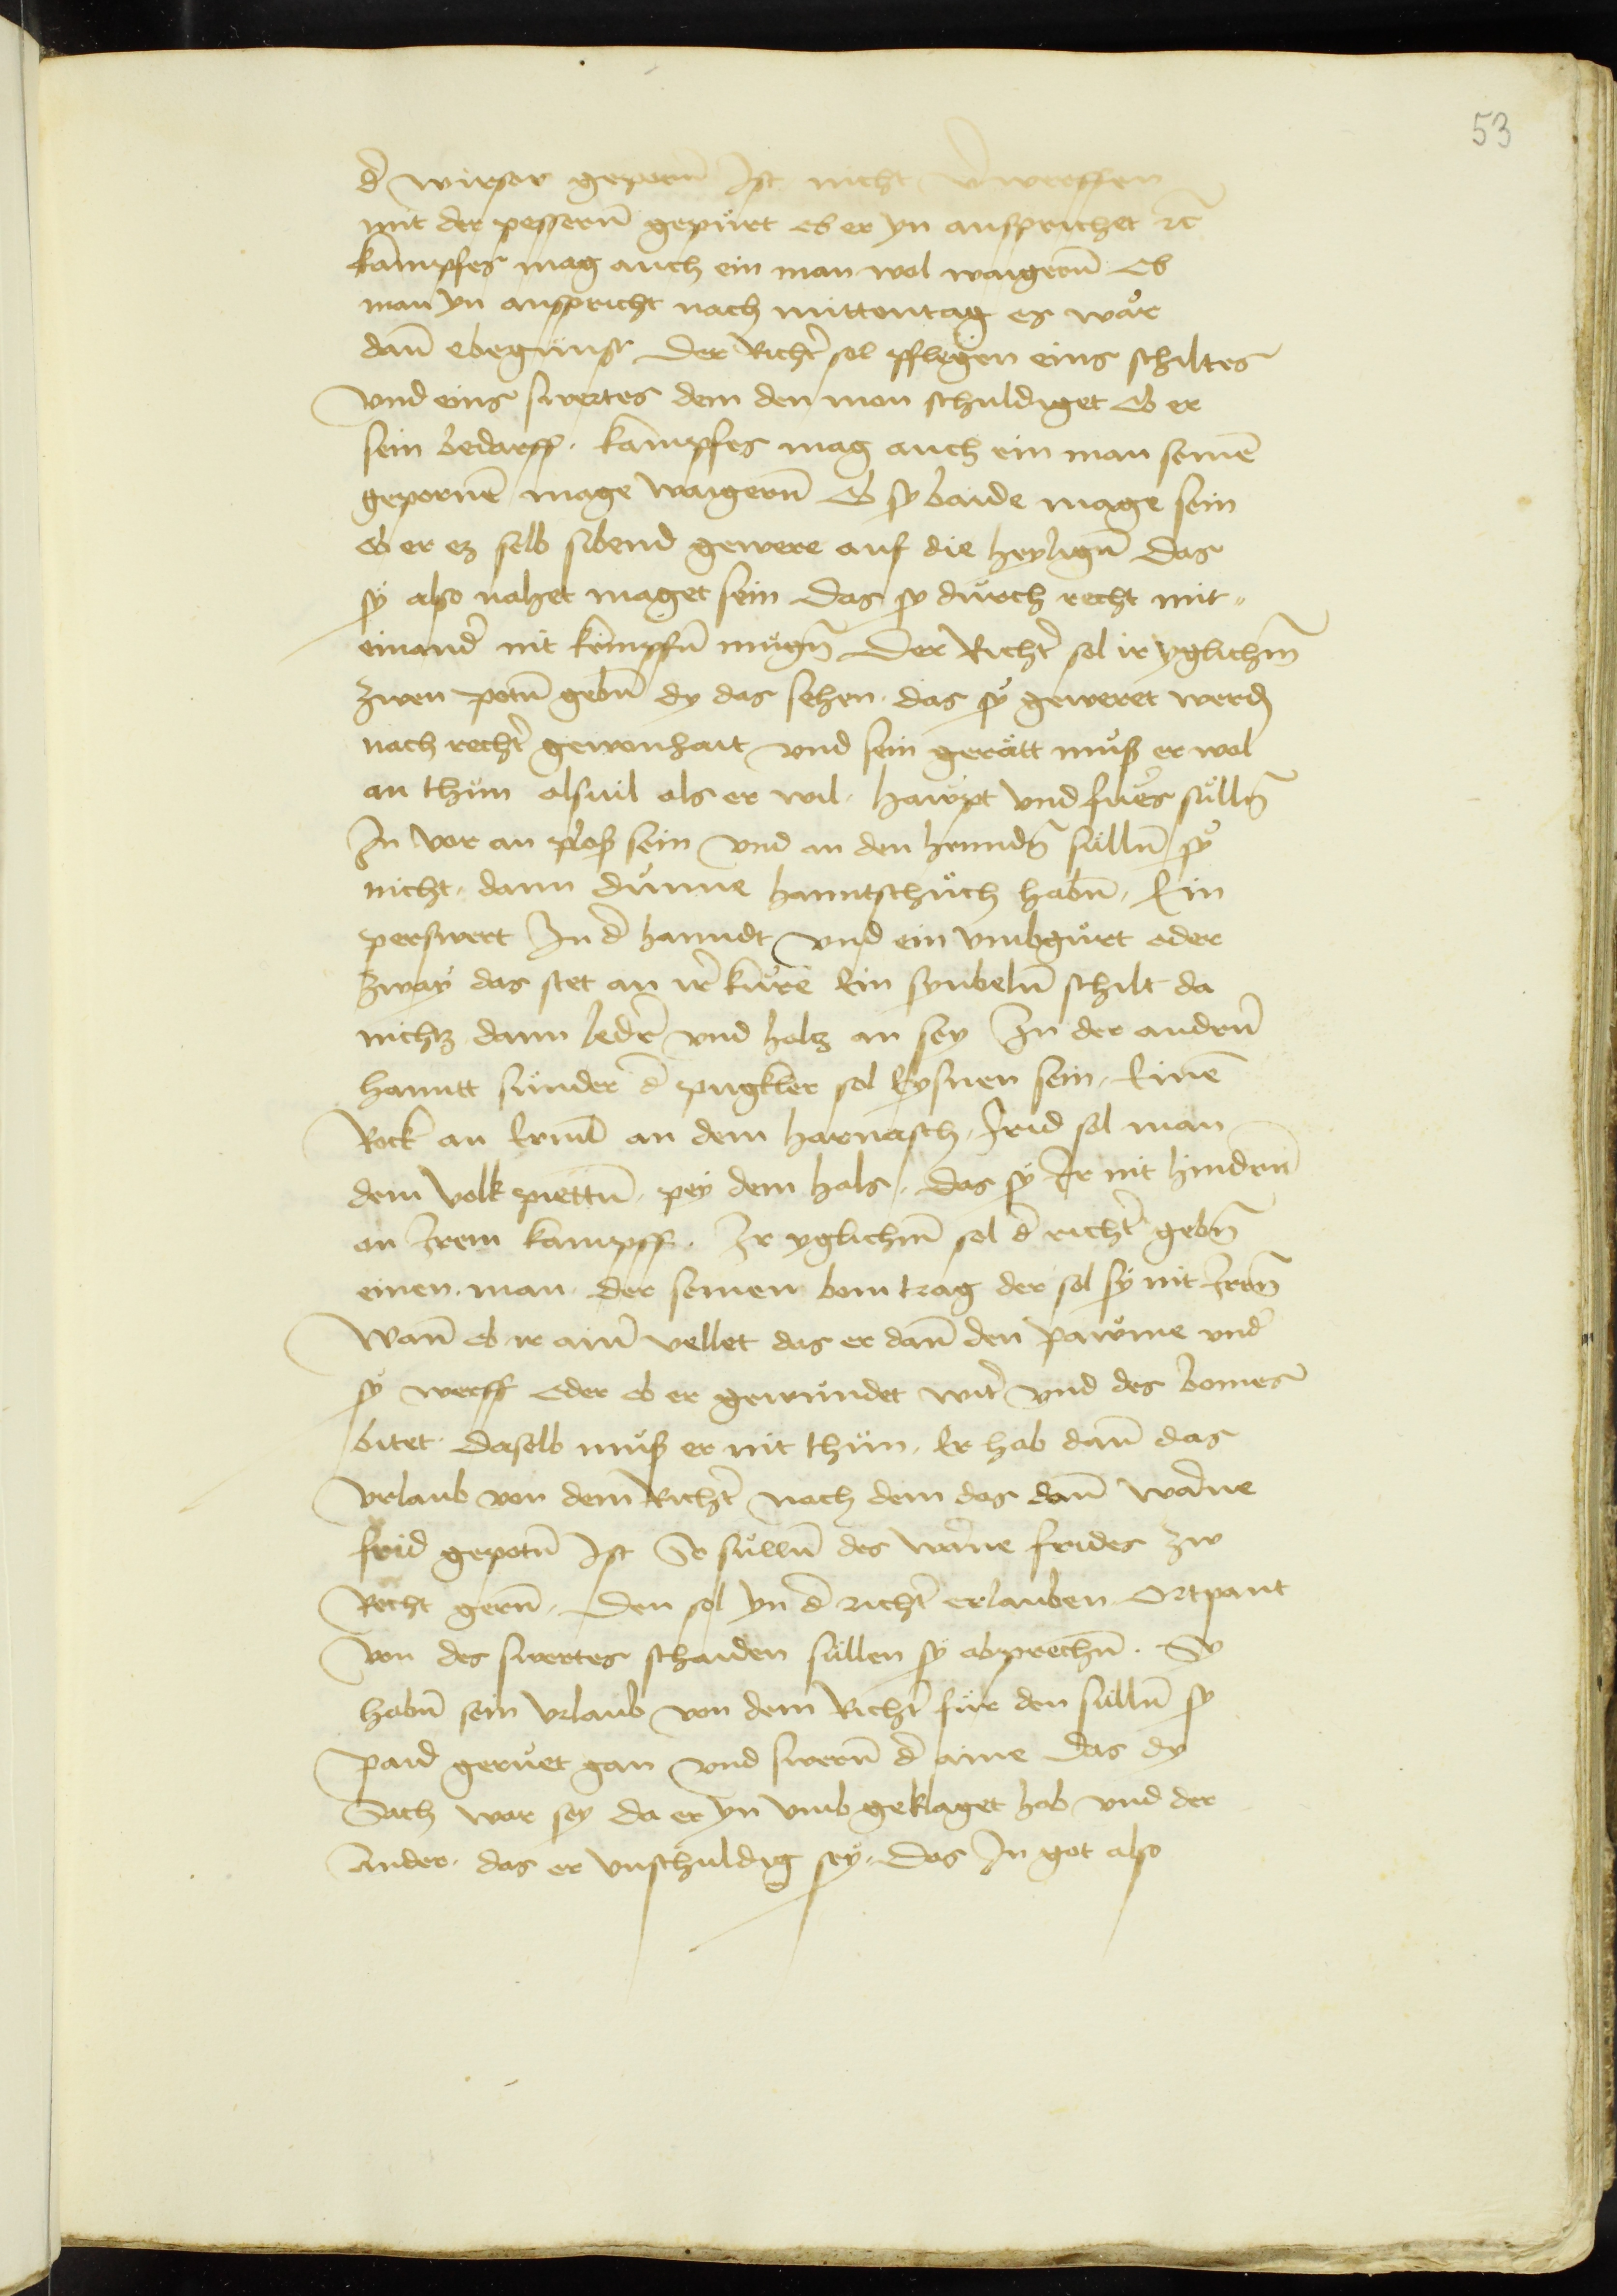 53
d̄ wirser geporn̄ Ist nicht v̄werffen
mit der pessern̄ gepürt ob er yn anspricht ꝛc̄
kampfes mag auch ein man wol waigern̄ Ob
man yn anspricht nach mittentag es wär
dan̄ e begunst Der Richt̄ sol pflegen eins schiltes
vnd eins swertes dem den man schuldiget Ob er
sein bedarff. kampfes mag auch ein man seinē
gepornē mage waigern̄ Ob sy baide mage sein
Ob er ez selb sibend gewere auf die heylign̄ das
sÿ also nahet maget sein das sy dürch recht mit-
einand̄ nit kempfn̄ mügn̄ Der Richt̄ sol ir yglichm̄
zwen potn̄ gebn̄ dy das sehen. das sÿ geweret werdn̄
nach recht̄ gewonhait vnd sein gerätt müß er wol
an thün alsuil als er wil. hawpt vnd fües sülln̄
In vor an ploß sein vnd an den henndn̄ sülln̄ sÿ
nicht. dann dünne hanntschüch habn̄. Ein
perswert In d̄ hanndt vnd ein vmbgürt oder
zwaÿ das stet an ir̄ küre Ein synbeln̄ schilt da
nichtz dann leder̄ vnd holtz an sey In der andern̄
hanntt sünder d̄ pugkler sol Eysnen sein. Einē
Rock an Erml̄ an dem harnasch. frid sol man
dem volk piettn̄. pey dem hals. das sÿ Ir nit hindern̄
an Irem kampff. Ir yglichm̄ sol d̄ richt̄ gebn̄
einen. man. der seinen bom trag der sol sÿ nit Iren̄
Wan̄ ob ir ain̄ vellet das er dan̄ den pawme vnd̄
sÿ werff Oder ob er gewündet wirt̄ vnd des bomes
bitet. Daselb müß er nit thün. Er hab dan̄ das
vrlaub von dem Richt̄ nach dem das dan̄ war̄ne
frid gepotn̄ Ist So sülln̄ des war̄ne frides zw
Recht gern̄. Den sol yn d̄ richt̄ erlauben Ortpant
von des swertes schaiden süllen sÿ abprechn̄. Sÿ
habn̄ sein vrlaub von dem Richt̄ für den sülln̄ sÿ
paid gerüet gan vnd swern̄ d̄ aine das dy
Sach war sey da er yn vmb geklaget hab vnd der
ander. das er vnschuldig sey. Das In got also